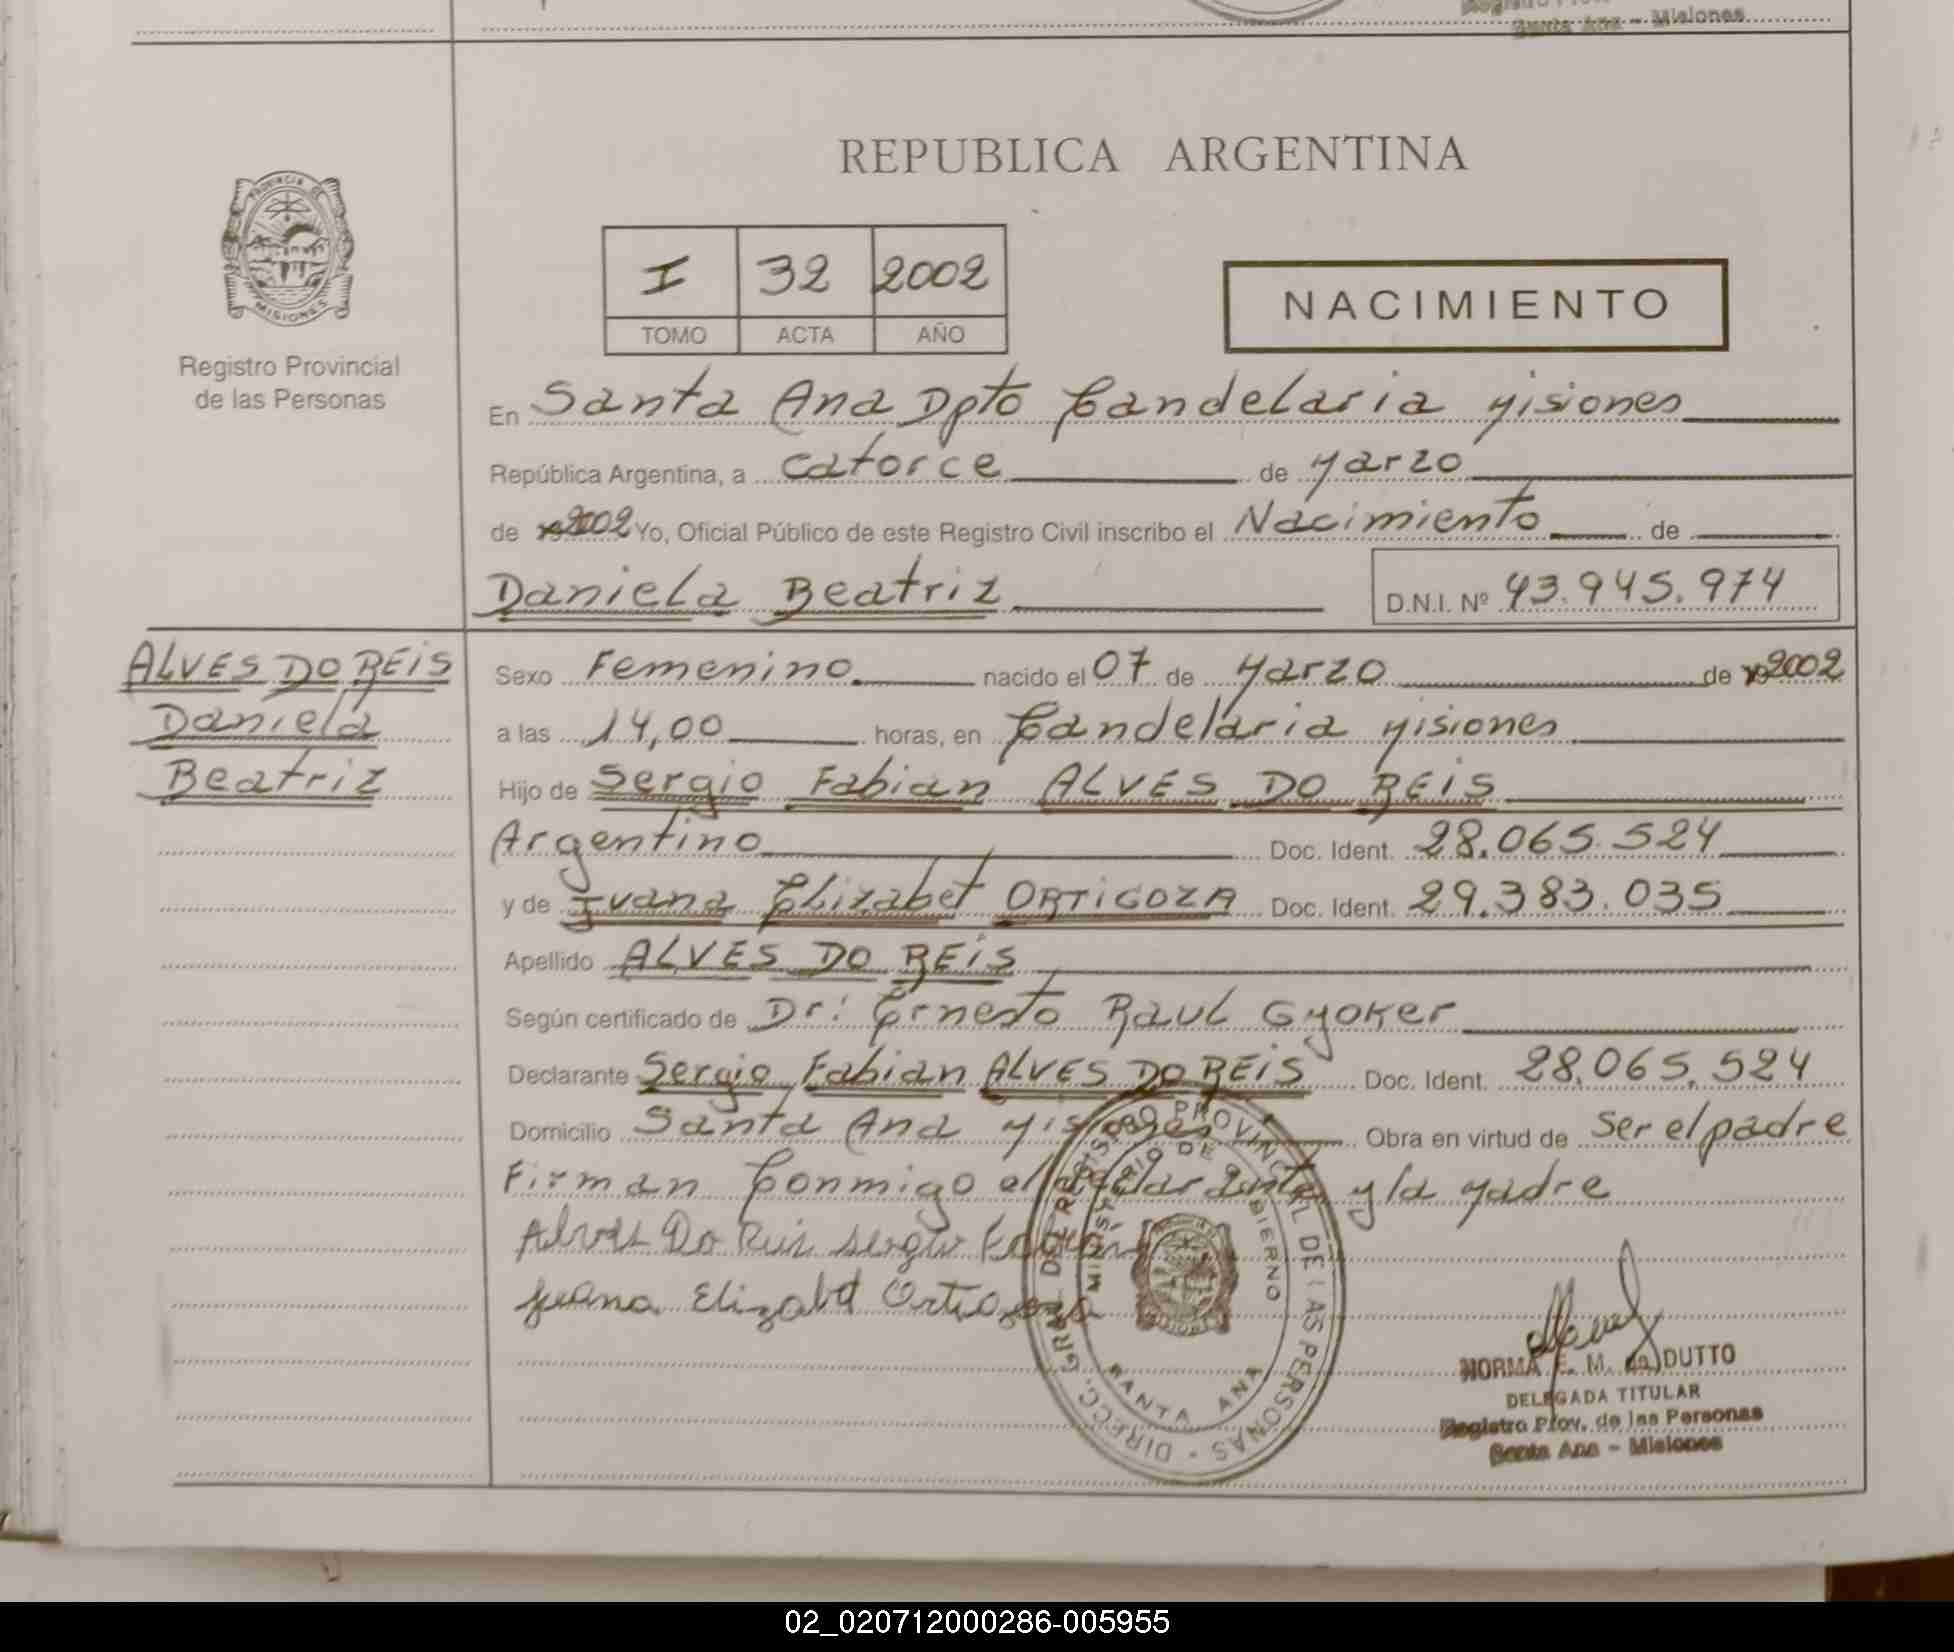 Santa Ana - Misiones
REPUBLICA ARGENTINA
PROVINCIA DE
MISIONES
Registro Provincial
de las Personas
I 32 2002
TOMO ACTA AÑO
NACIMIENTO
En Santa Ana Dpto Candelaria Misiones
República Argentina, a catorce de Marzo
de 2002 Yo, Oficial Público de este Registro Civil inscribo el Nacimiento de
Daniela Beatriz D.N.I. Nº 43.945.974
ALVES DO REIS
Daniela
Beatriz
Sexo Femenino nacido el 07 de Marzo de 2002
a las 14,00 horas, en Candelaria Misiones
Hijo de Sergio Fabian ALVES DO REIS
Argentino Doc. Ident. 28.065.524
y de Ivana Elizabet ORTIGOZA Doc. Ident. 29.383.035
Apellido ALVES DO REIS
Según certificado de Dr: Ernesto Raul Gyoker
Declarante Sergio Fabian ALVES DO REIS Doc. Ident. 28.065.524
Domicilio Santa Ana Misiones Obra en virtud de Ser el padre
Firman Conmigo el declarante y la Madre
Alves Do Reis Sergio Fabian
Elizabet Ortigoza
DIRECC. GRAL. DE REGISTRO PROVINCIAL DE LAS PERSONAS -
MINISTERIO DE GOBIERNO
SANTA ANA
NORMA E. M. de DUTTO
DELEGADA TITULAR
Registro Prov. de las Personas
Santa Ana - Misiones
02_020712000286-005955